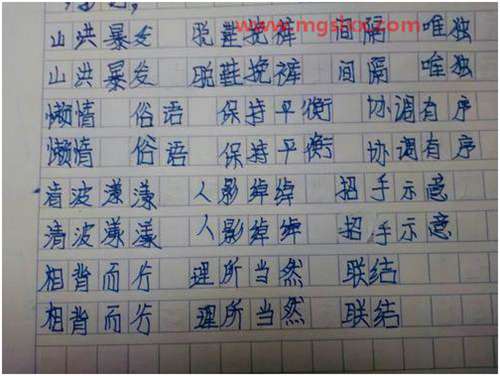 www.mgshx.com
山洪暴发 脱鞋挽裤 间隔 唯独
山洪暴发 脱鞋挽裤 间隔 唯独
懒惰 俗语 保持平衡 协调有序
懒惰 俗语 保持平衡 协调有序
清波漾漾 人影绰绰 招手示意
清波漾漾 人影绰绰 招手示意
相背而行 理所当然 联结
相背而行 理所当然 联结